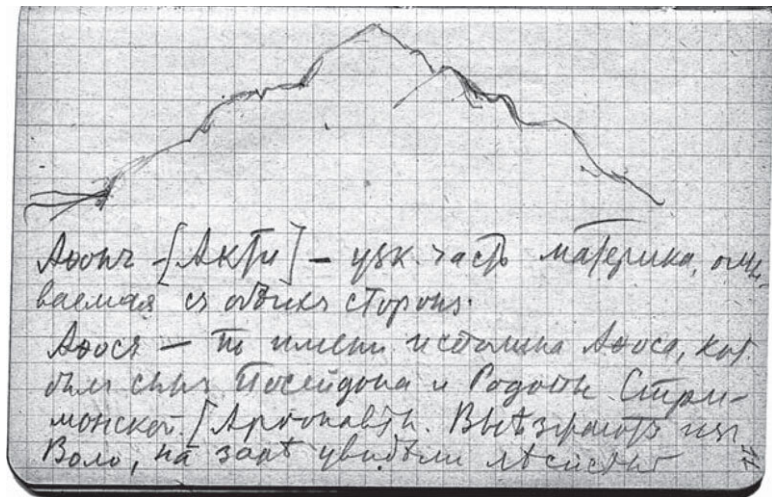 Аѳонъ – [Акти] – узк. часть материка, омы-
ваемая съ обѣихъ сторонъ.
Аѳосъ – по имени исполина Аѳоса, кот.
былъ сынъ Посейдона и Родопы Стри-
монской. [Аргонавты. Выѣзжаютъ изъ
Воло, на зарѣ увидѣли